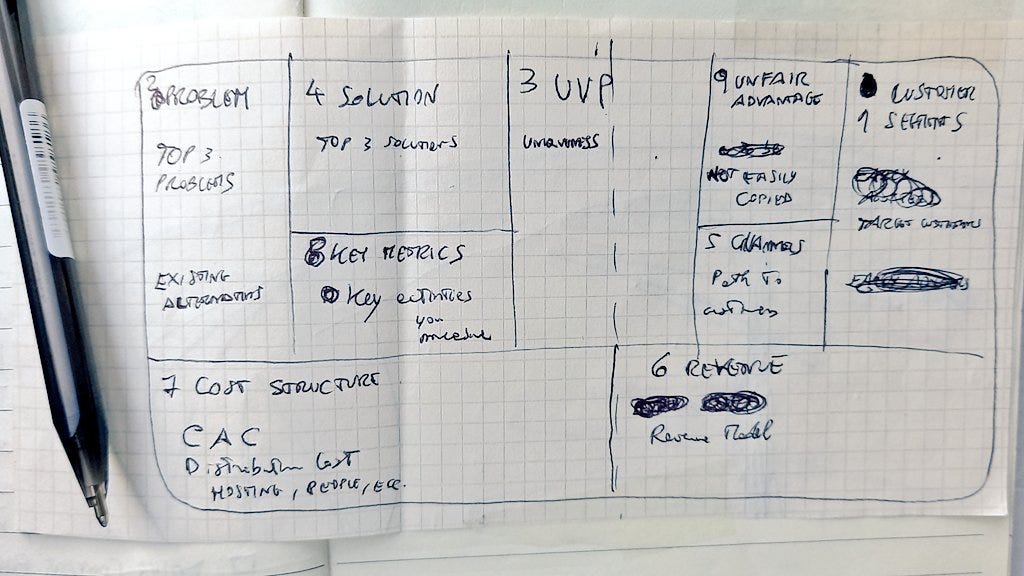 PROBLEM
TOP 3
PROBLEMS
EXISTING
ALTERNATIVES
4 SOLUTION
TOP 3 SOLUTIONS
8 KEY METRICS
Key activities
you
measure
3 UVP
UNIQUENESS
9 UNFAIR
ADVANTAGE
NOT EASILY
COPIED
5 CHANNELS
Path to
customers
CUSTOMER
1 SEGMENTS
TARGET CUSTOMERS
7 COST STRUCTURE
CAC
Distribution Cost
HOSTING, PEOPLE, ECC.
6 REVENUE
Revenue Model